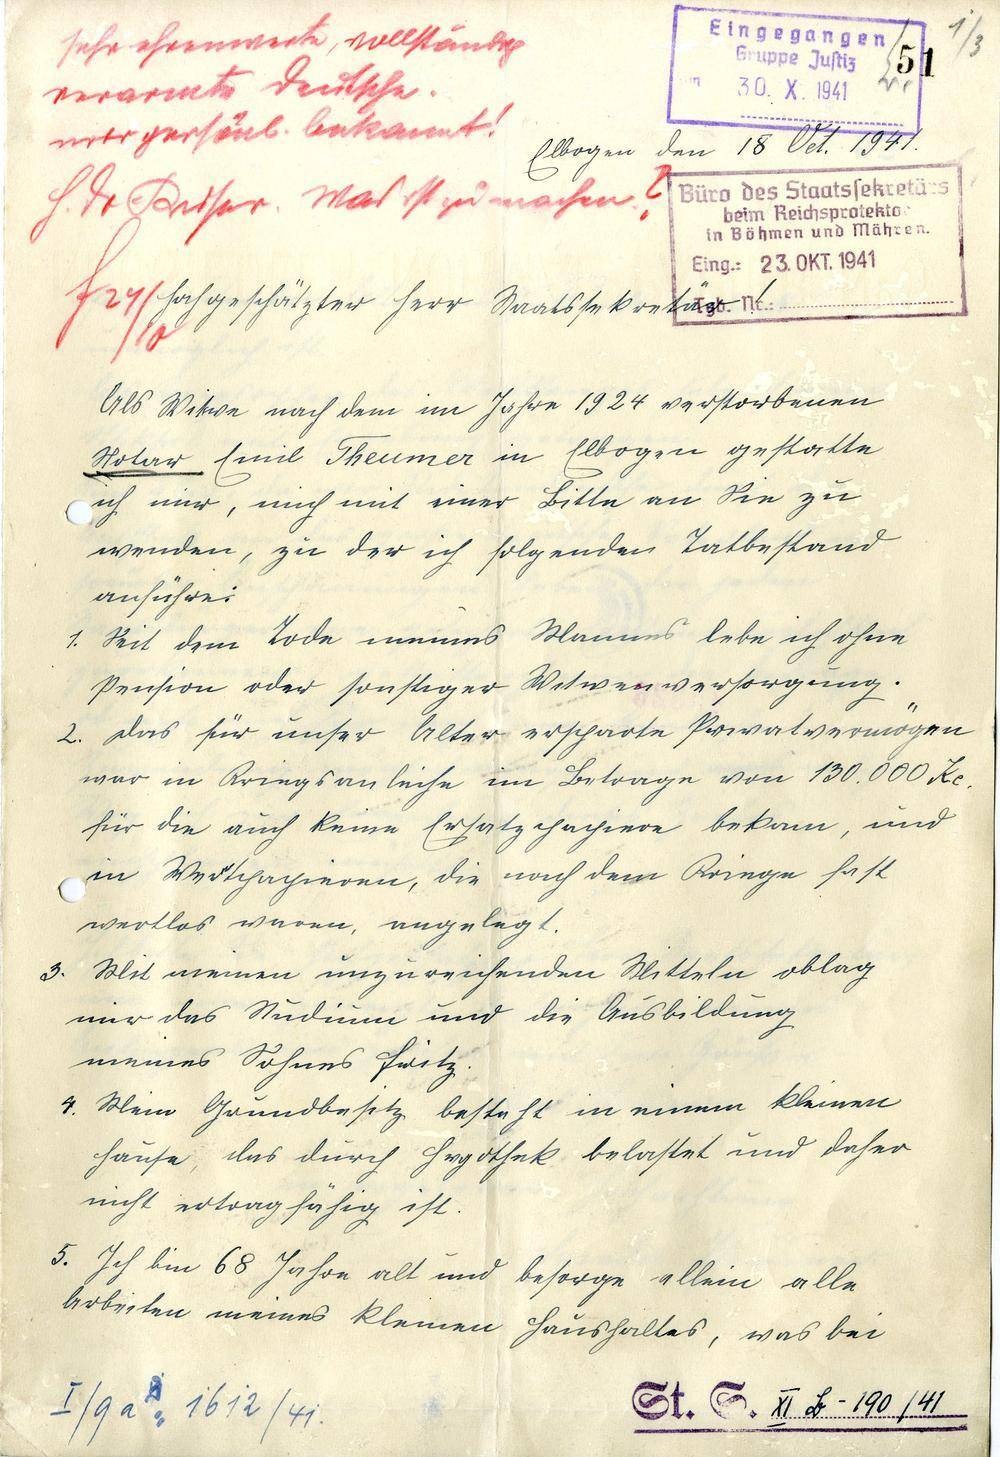 sehr ehrenwerte, vollständig
verarmte Deutsche.
mir persönl. bekannt!
H. Dr Reiser. Was ist zu machen?
F 24/
/10
Eingegangen
Gruppe Justiz
30. X. 1941
51
1/3
Elbogen den 18 Oct. 1941.
Büro des Staatssekretärs
beim Reichsprotektor
in Böhmen und Mähren.
Eing.: 23. OKT. 1941
Tgb. Nr.:
Hochgeschätzter Herr Staatssekretär!
Als Witwe nach dem im Jahre 1924 verstorbenen
Notar Emil Theumer in Elbogen gestatte
ich mir, mich mit einer Bitte an Sie zu
wenden, zu der ich folgenden Tatbestand
anführe:
1. Seit dem Tode meines Mannes lebe ich ohne
Pension oder sonstiger Witwenversorgung.
2. Das für unser Alter ersparte Privatvermögen
war in Kriegsanleihe im Betrage von 130.000 Kc.
für die auch keine Ersatzpapiere bekam, und
in Wertpapieren, die nach dem Kriege fast
wertlos waren, angelegt.
3. Mit meinen unzureichenden Mitteln oblag
mir das Studium und die Ausbildung
meines Sohnes Fritz.
4. Mein Grundbesitz besteht in einem kleinen
Hause, das durch Hypothek belastet und daher
nicht ertragfähig ist.
5. Ich bin 68 Jahre alt und besorge allein alle
Arbeiten meines kleinen Haushaltes, was bei
I/9a 1612/41.
St. S. XI B - 190/41